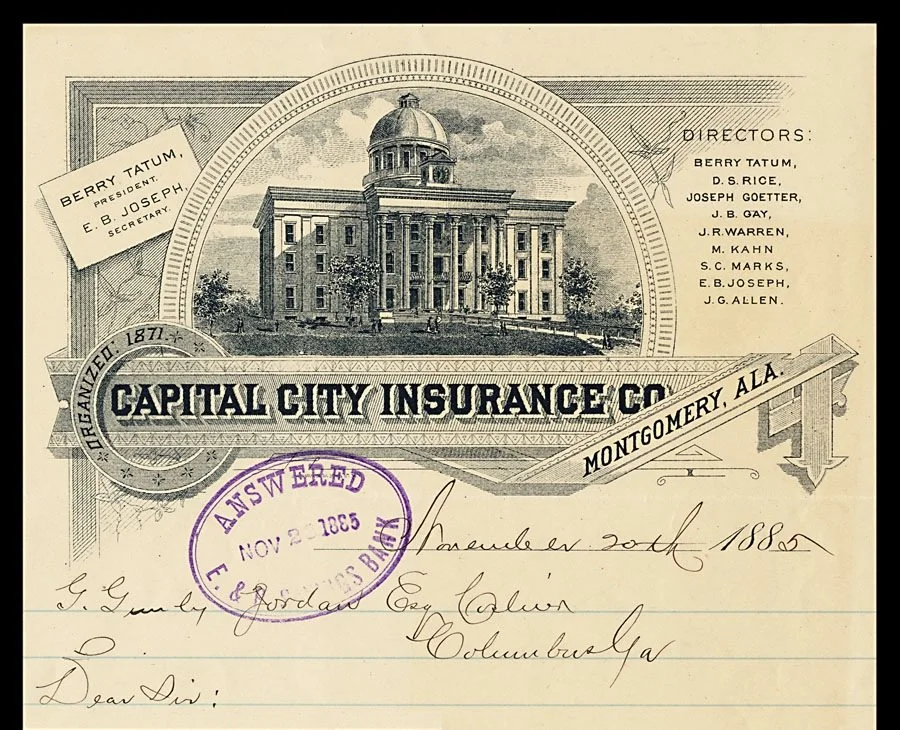 BERRY TATUM,
PRESIDENT.
E. B. JOSEPH,
SECRETARY.
DIRECTORS:
BERRY TATUM,
D. S. RICE,
JOSEPH GOETTER,
J. B. GAY,
J. R. WARREN,
M. KAHN
S. C. MARKS,
E. B. JOSEPH,
J. G. ALLEN.
ORGANIZED: 1871.
CAPITAL CITY INSURANCE CO.
MONTGOMERY, ALA.
ANSWERED
NOV 1885
E. & BANK
November 20th 1885
G. Gunby Jordan Esq
Columbus Ga
Dear Sir: